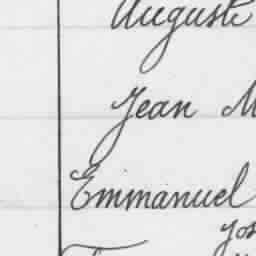 Auguste
Jean M
Emmanuel
Jos